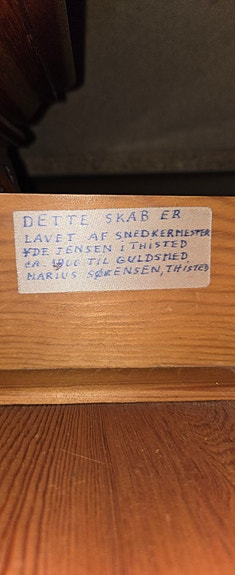 DETTE SKAB ER
LAVET AF SNEDKERMESTER
YDE JENSEN I THISTED
ca. 1900 TIL GULDSMED,
MARIUS SØRENSEN, THISTED